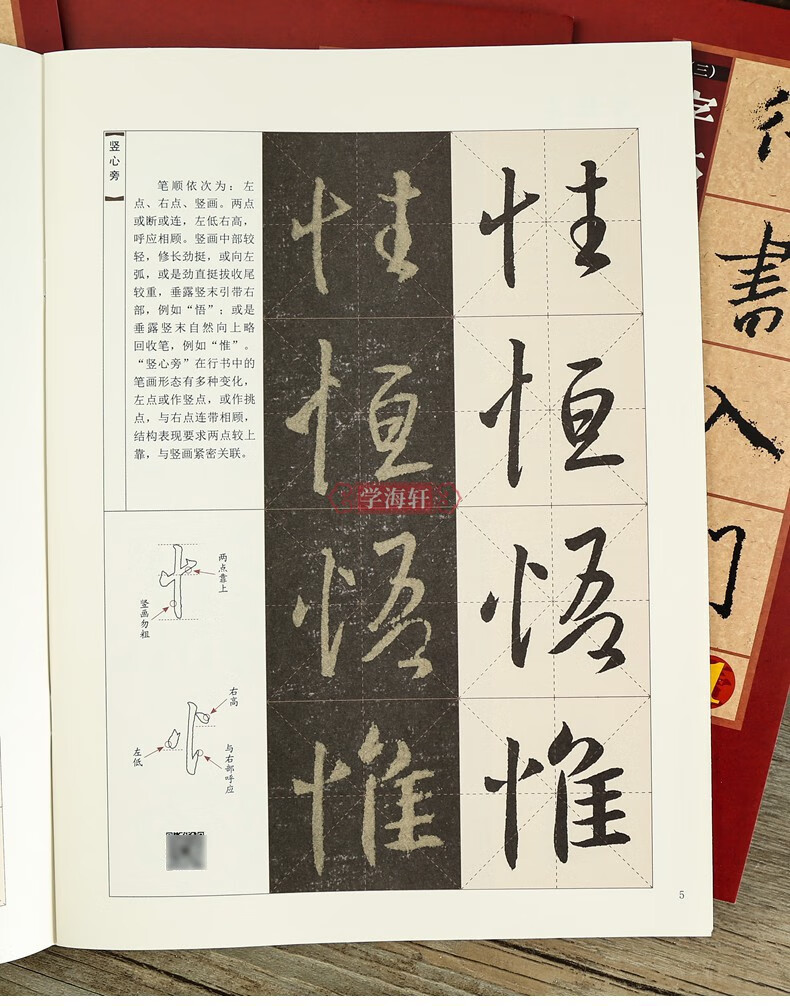 竖心旁
笔顺依次为：左
点、右点、竖画。两点
或断或连，左低右高，
呼应相顾。竖画中部较
轻，修长劲挺，或向左
弧，或是劲直挺拔收尾
较重，垂露竖末引带右
部，例如“悟”；或是
垂露竖末自然向上略
回收笔，例如“惟”。
“竖心旁”在行书中的
笔画形态有多种变化，
左点或作竖点，或作挑
点，与右点连带相顾，
结构表现要求两点较上
靠，与竖画紧密关联。
两点靠上
竖画勿粗
右高
左低
与右部呼应
恒
恒
悟
悟
惟
惟
学海轩
5
（三）
書
入
门
1